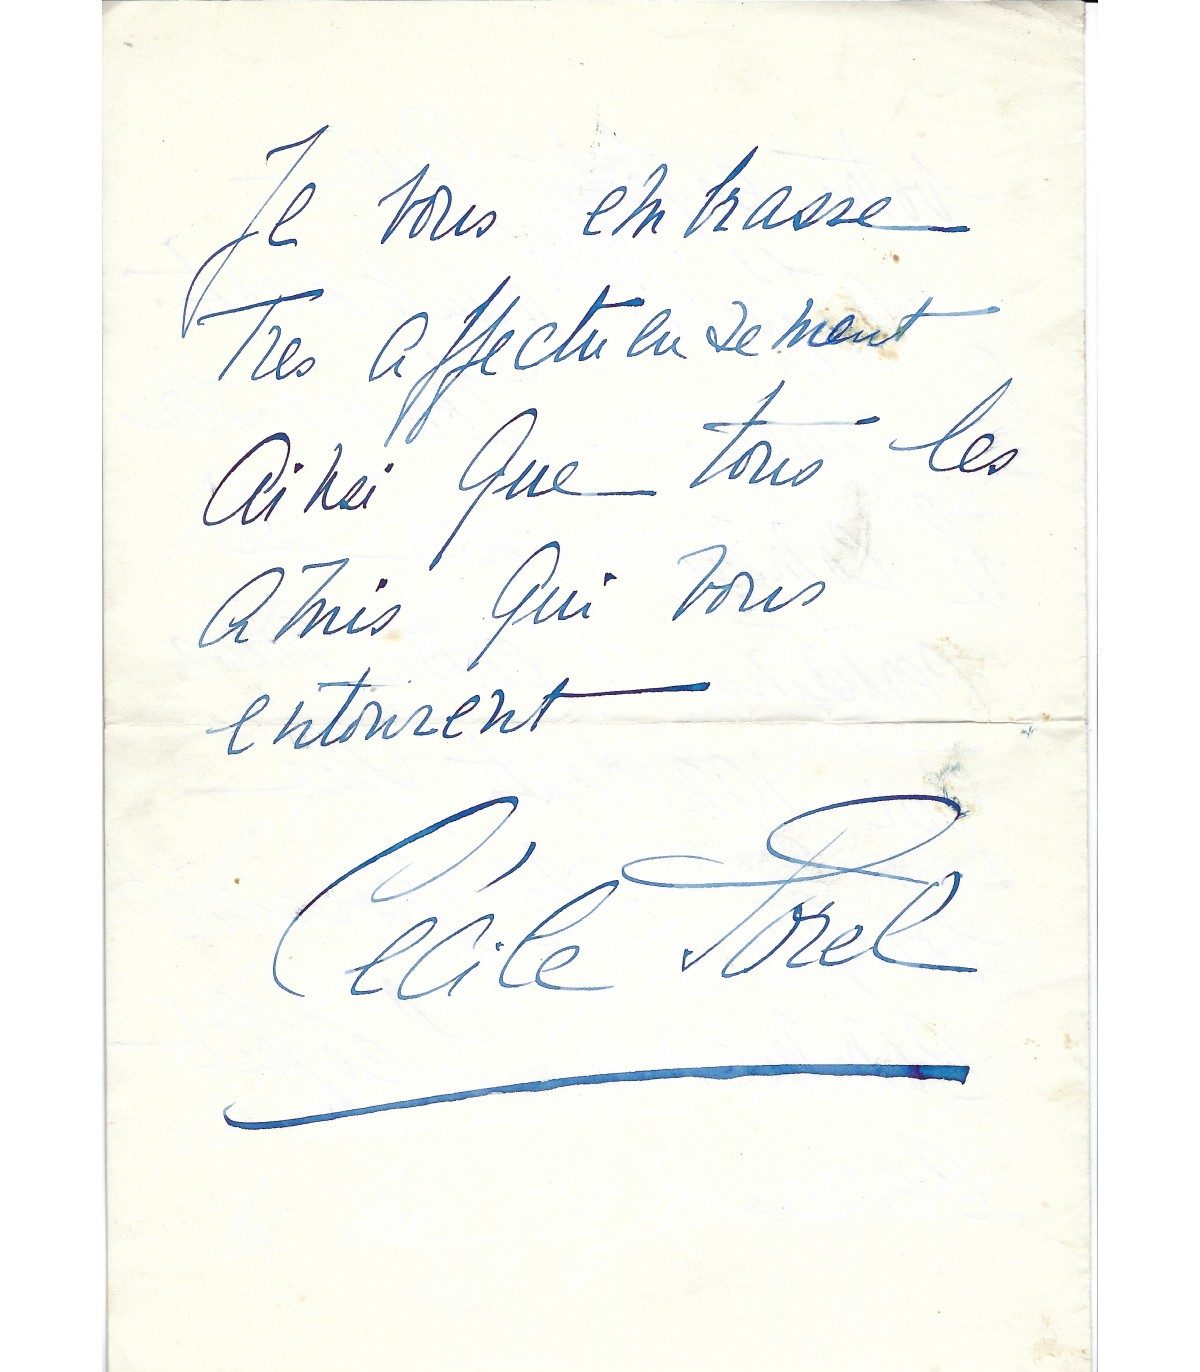 Je vous embrasse
Tres affectueusement
Ainsi que tous les
amis qui vous
entourent
Cécile Sorel